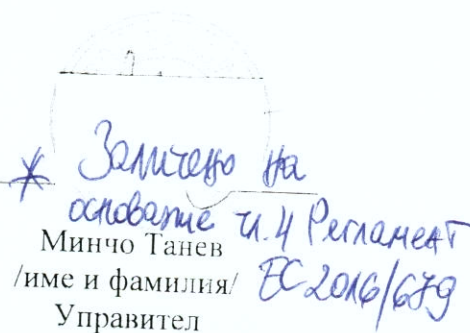 * Заличено на
основание чл.4 Регламент
ЕС 2016/679
Минчо Танев
/име и фамилия/
Управител